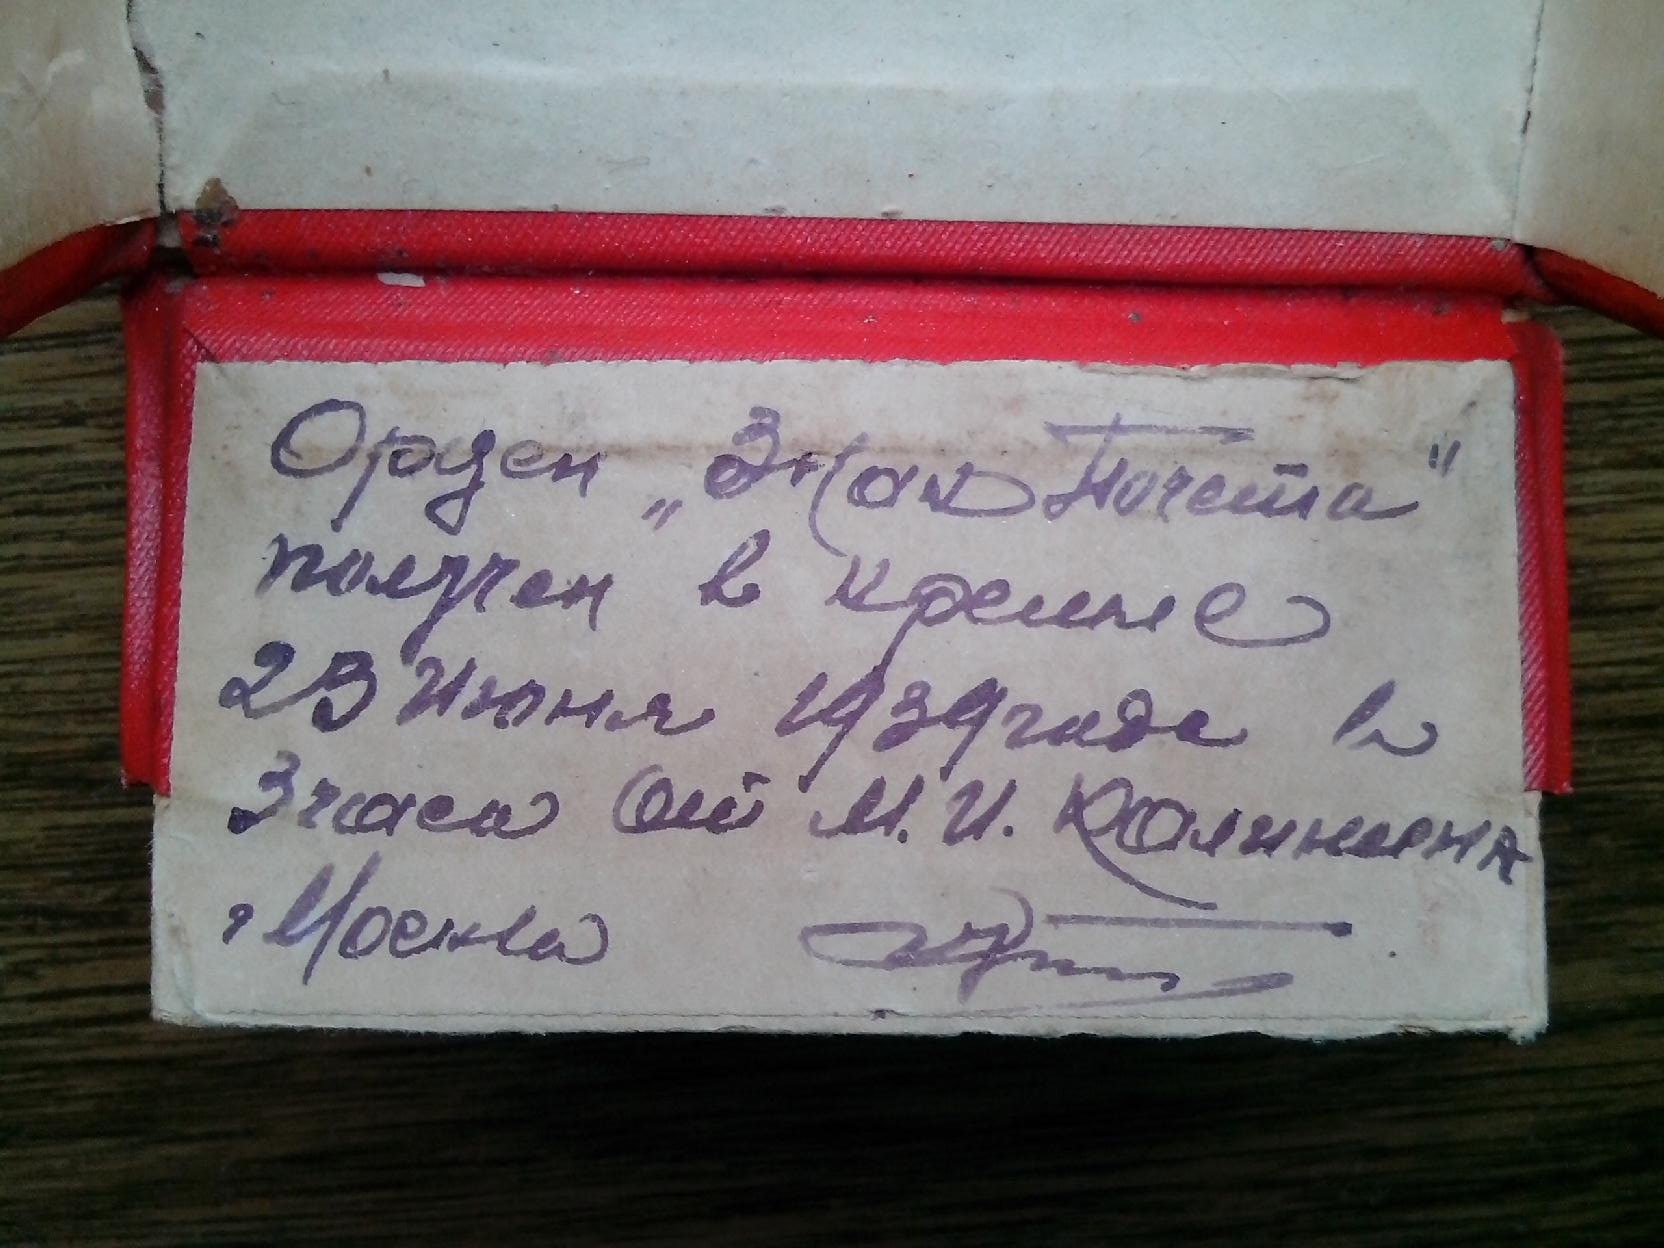 Орден „Знак Почета"
получен в кремле
23 июня 1939 года в
3 часа от М. И. Калинина
г Москва